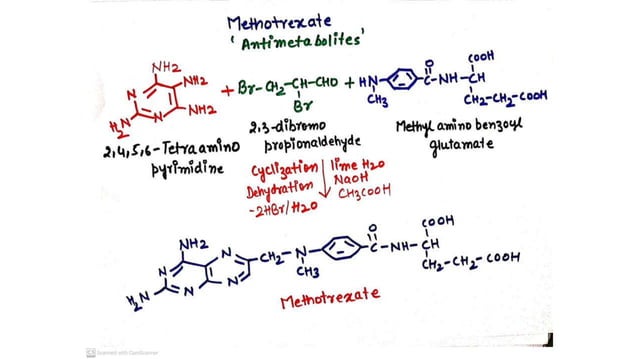 Methotrexate
'Antimetabolites'
NH2
NH2
NH2
N
N
H2N
+ Br-CH2-CH-CHO +
Br
HN
CH3
O
C-NH-CH
COOH
CH2-CH2-COOH
2,4,5,6-Tetraamino
pyrimidine
2,3-dibromo
propionaldehyde
Methyl amino benzoyl
glutamate
Cyclization
Dehydration
-2HBr/H2O
lime H2O
NaOH
CH3COOH
NH2
N
N
H2N
N
N
CH2-N
CH3
O
C-NH-CH
COOH
CH2-CH2-COOH
Methotrexate
CS Scanned with CamScanner